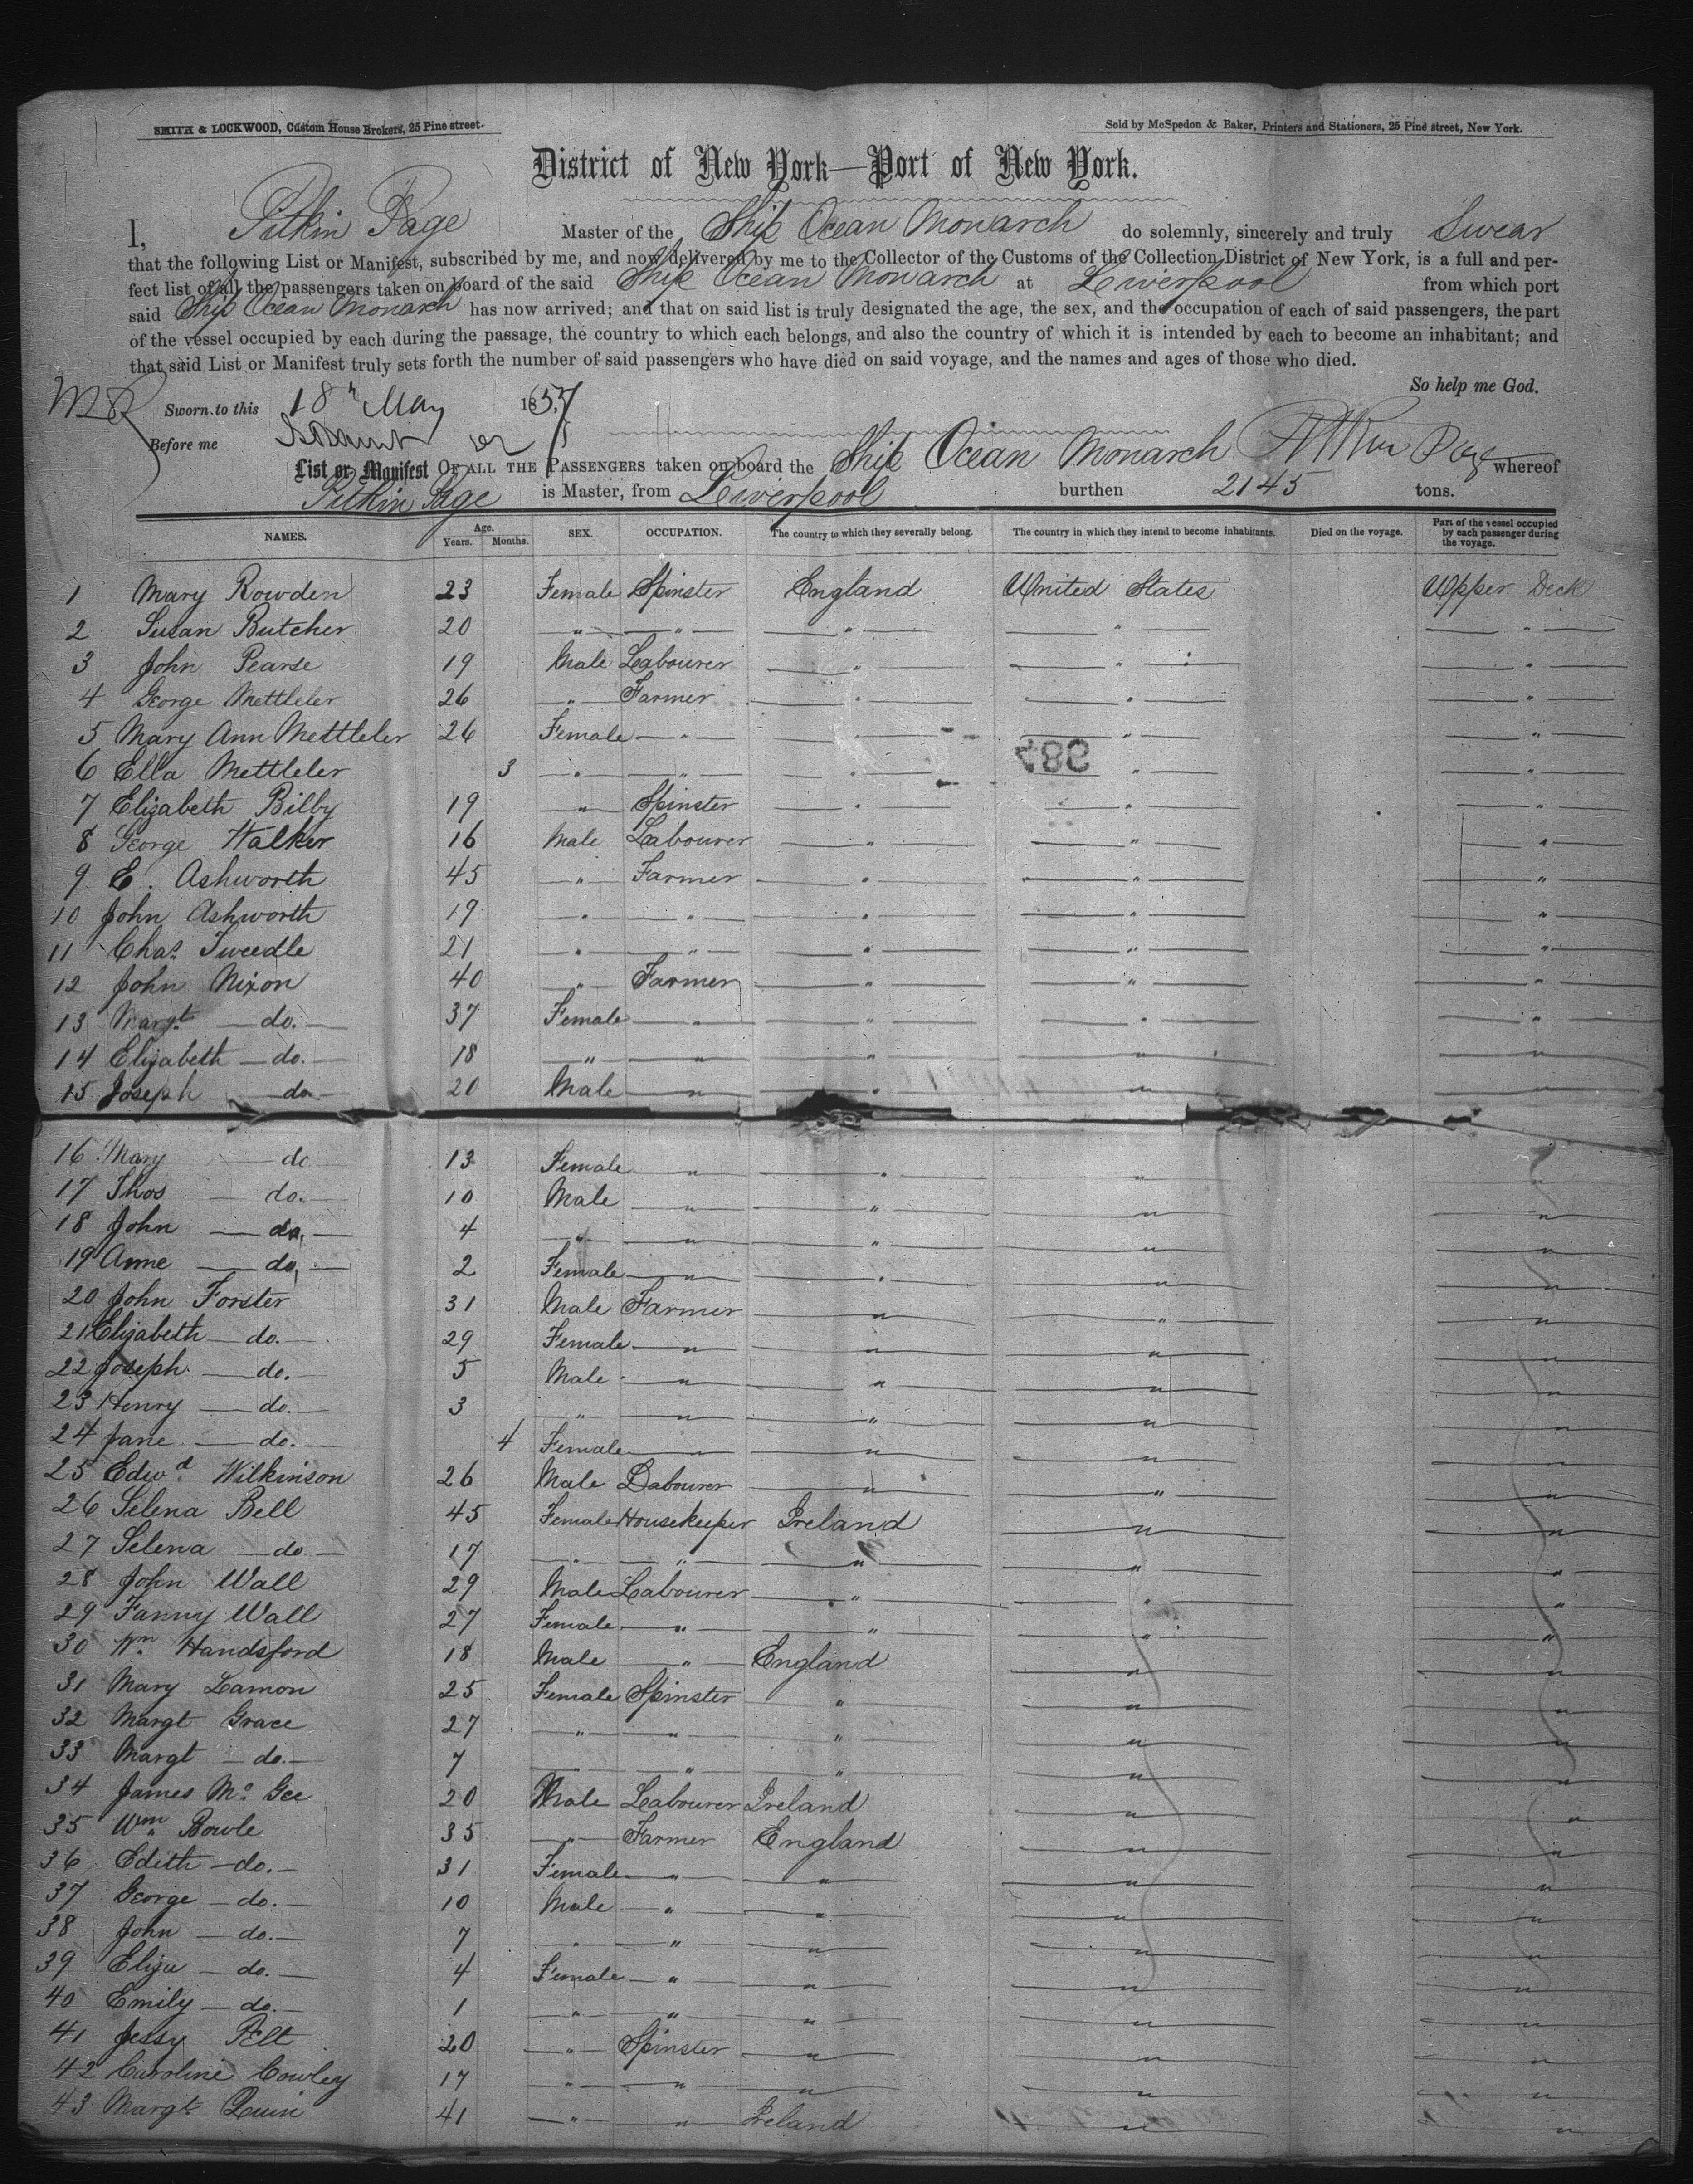 SMITH & LOCKWOOD, Custom House Brokers, 25 Pine street.
Sold by McSpedon & Baker, Printers and Stationers, 25 Pine street, New York.
District of New York—Port of New York.
I, Pitkin Page Master of the Ship Ocean Monarch do solemnly, sincerely and truly Swear
that the following List or Manifest, subscribed by me, and now delivered by me to the Collector of the Customs of the Collection District of New York, is a full and per-
fect list of all the passengers taken on board of the said Ship Ocean Monarch at Liverpool from which port
said Ship Ocean Monarch has now arrived; and that on said list is truly designated the age, the sex, and the occupation of each of said passengers, the part
of the vessel occupied by each during the passage, the country to which each belongs, and also the country of which it is intended by each to become an inhabitant; and
that said List or Manifest truly sets forth the number of said passengers who have died on said voyage, and the names and ages of those who died.
So help me God.
Sworn to this 18th May 1857
Before me
Pitkin Page
List or Manifest OF ALL THE PASSENGERS taken on board the Ship Ocean Monarch whereof
Pitkin Page is Master, from Liverpool burthen 2145 tons.
NAMES. Age. Years. Months. SEX. OCCUPATION. The country to which they severally belong. The country in which they intend to become inhabitants. Died on the voyage. Part of the vessel occupied by each passenger during the voyage.
1 Mary Rowden 23 Female Spinster England United States Upper Deck
2 Susan Butcher 20 " " " " "
3 John Pearse 19 Male Labourer " " "
4 George Mettleler 26 " Farmer " " "
5 Mary Ann Mettleler 26 Female " " " "
6 Ella Mettleler 3 " " " " "
7 Elizabeth Bilby 19 " Spinster " " "
8 George Walker 16 Male Labourer " " "
9 E. Ashworth 45 " Farmer " " "
10 John Ashworth 19 " " " " "
11 Chas. Tweedle 21 " " " " "
12 John Nixon 40 " Farmer " " "
13 Margt. do. 37 Female " " " "
14 Elizabeth do. 18 " " " " "
15 Joseph do. 20 Male " " " "
16 Mary do 13 Female " " " "
17 Thos do. 10 Male " " " "
18 John do. 4 " " " " "
19 Anne do. 2 Female " " " "
20 John Forster 31 Male Farmer " " "
21 Elizabeth do. 29 Female " " " "
22 Joseph do. 5 Male " " " "
23 Henry do. 3 " " " " "
24 Jane do. 4 Female " " " "
25 Edwd. Wilkinson 26 Male Labourer " " "
26 Selena Bell 45 Female Housekeeper Ireland " "
27 Selena do 17 " " " " "
28 John Wall 29 Male Labourer " " "
29 Fanny Wall 27 Female " " " "
30 Wm. Handsford 18 Male " England " "
31 Mary Lamon 25 Female Spinster " " "
32 Margt Grace 27 " " " " "
33 Margt do. 7 " " " " "
34 James Mc Gee 20 Male Labourer Ireland " "
35 Wm. Bowle 35 " Farmer England " "
36 Edith do. 31 Female " " " "
37 George do. 10 Male " " " "
38 John do. 7 " " " " "
39 Eliza do. 4 Female " " " "
40 Emily do. 1 " " " " "
41 Jessy Pelt 20 " Spinster " " "
42 Caroline Cowley 17 " " " " "
43 Margt. Quin 41 " " Ireland " "